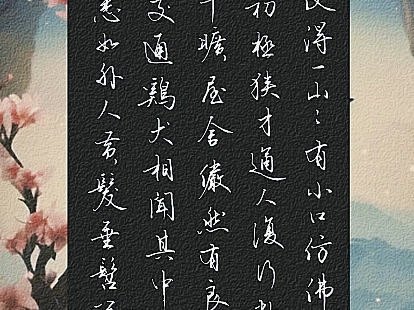 得一山〻有小口仿佛
初極狭才通人復行
曠屋舍儼然有良
交通鷄犬相聞其中
悉如外人黄髮垂髫